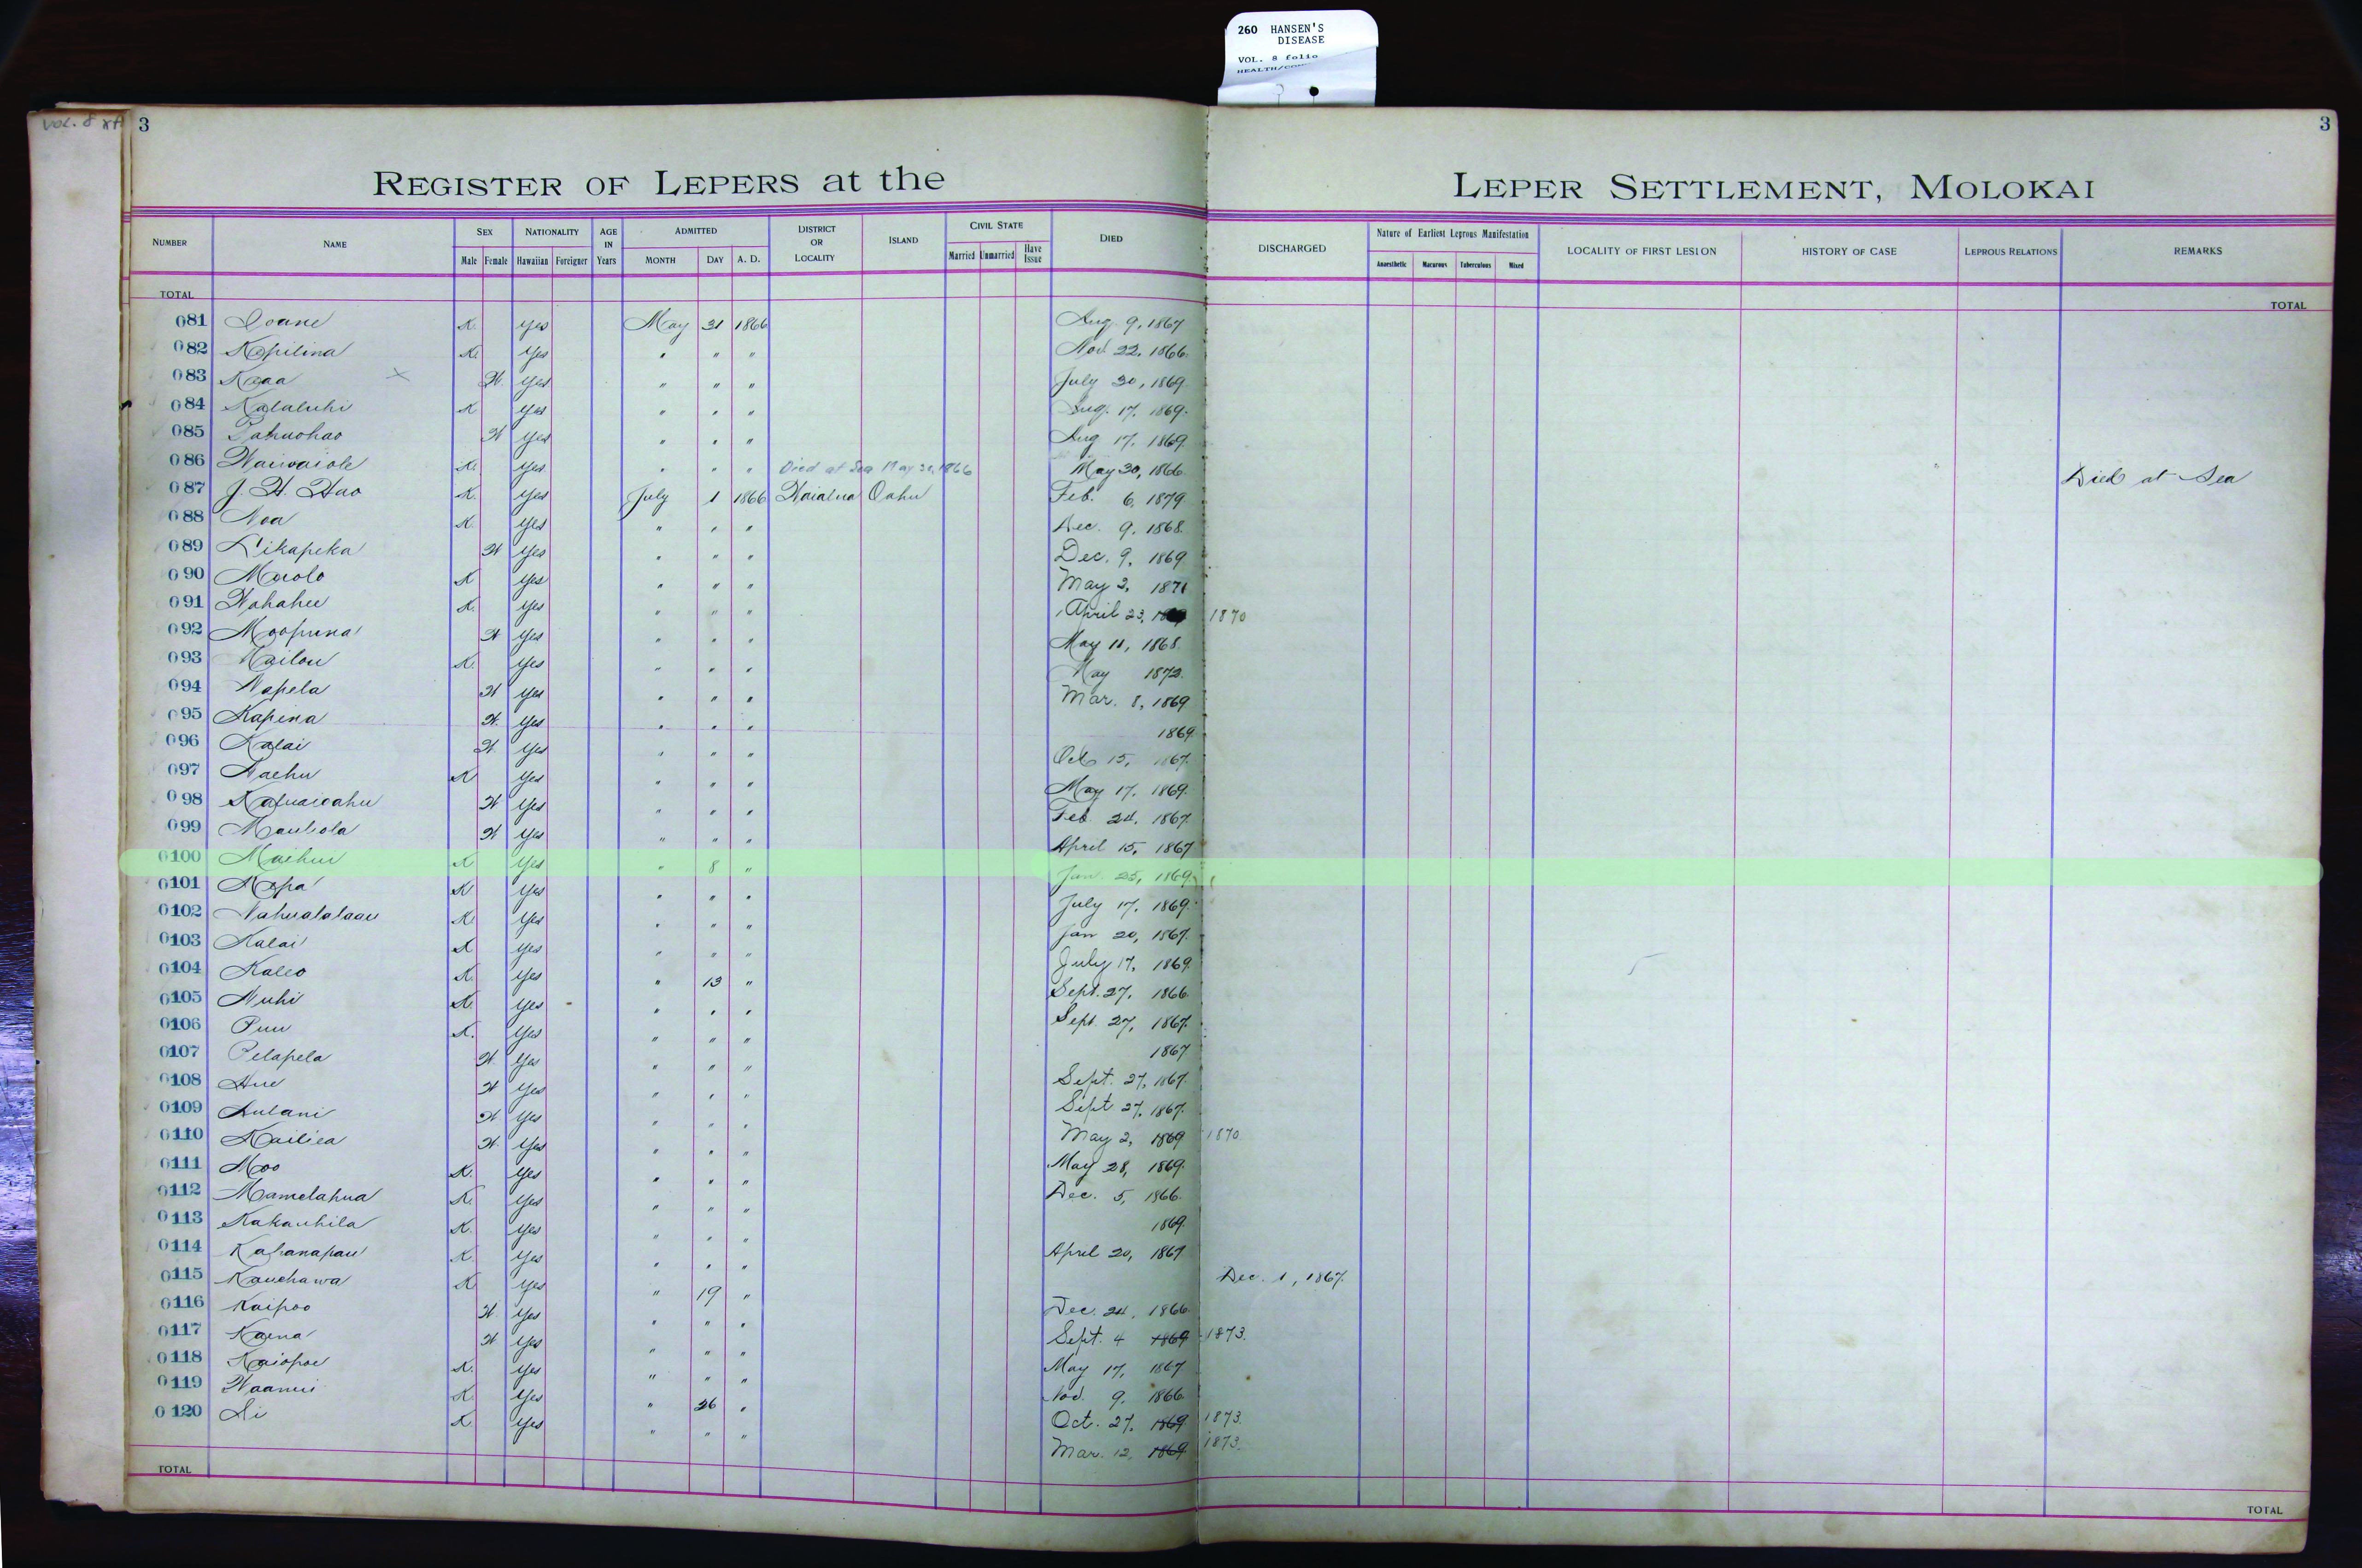 260 HANSEN'S
DISEASE
VOL. 8 folio
VOL. 8
3
3
REGISTER OF LEPERS at the LEPER SETTLEMENT, MOLOKAI
NUMBER NAME SEX Male Female NATIONALITY Hawaiian Foreigner AGE IN Years ADMITTED MONTH DAY A. D. DISTRICT OR LOCALITY ISLAND CIVIL STATE Married Unmarried Have Issue DIED DISCHARGED Nature of Earliest Leprous Manifestation Anaesthetic Macurous Tuberculous Mixed LOCALITY OF FIRST LESION HISTORY OF CASE LEPROUS RELATIONS REMARKS
TOTAL TOTAL
081 Ioane K. yes May 31 1866 Aug. 9, 1867
082 Kopilina K. yes " " " Nov. 22, 1866
083 Kaaa x W. yes " " " July 30, 1869
084 Kalaluhi K yes " " " Aug. 17, 1869.
085 W yes " " " Aug 17, 1869.
086 Waiwaiole K. yes " " " Died at Sea May 30, 1866 May 30, 1866 Died at Sea
087 J. H. Hao K. yes July 1 1866 Waialua Oahu Feb. 6, 1879
088 Noa K. yes " " " Dec. 9, 1868.
089 Likapeka W yes " " " Dec. 9, 1869
090 K yes " " " May 2, 1871
091 K. yes " " " April 23, 1870
092 Moopuna W yes " " " May 11, 1868.
093 Kailou K. yes " " " May 1872.
094 Napela W yes " " " Mar. 8, 1869
095 Kapina W. yes " " " 1869
096 Kalai W yes " " " Oct 15, 1867.
097 Naehu K yes " " " May 17, 1869.
098 W yes " " " Feb. 24, 1867.
099 Mauliola W yes " " " April 15, 1867
0100 Maihui K yes " 8 " Jan. 25, 1869.
0101 Mopa K yes " " " July 17, 1869.
0102 Nahualalaau K. yes " " " Jan 20, 1867.
0103 Kalai K yes " " " July 17, 1869.
0104 Kaleo K. yes " 13 " Sept. 27, 1866.
0105 Nuhi K. yes " " " Sept. 27, 1867.
0106 Puu K. yes " " " 1867
0107 Pelapela W yes " " " Sept. 27, 1867.
0108 Hue W yes " " " Sept 27, 1867.
0109 Aulani W yes " " " May 2, 1869 1870.
0110 Kailiea W. yes " " " May 28, 1869.
0111 Moo K. yes " " " Dec. 5, 1866.
0112 Mamelahua K. yes " " " 1869.
0113 Kakauhila K. yes " " " April 20, 1867
0114 Kahanapau K. yes " " " Dec. 1, 1867.
0115 Kauehawa K. yes " 19 " Dec. 24, 1866.
0116 Kaipoo W. yes " " " Sept. 4 1869 1873.
0117 Kaena W yes " " " May 17, 1867
0118 Kaiopoe K. yes " " " Nov. 9, 1866.
0119 K. yes " 26 " Oct. 27, 1869 1873.
0120 K. yes " " " Mar. 12, 1869 1873.
TOTAL TOTAL